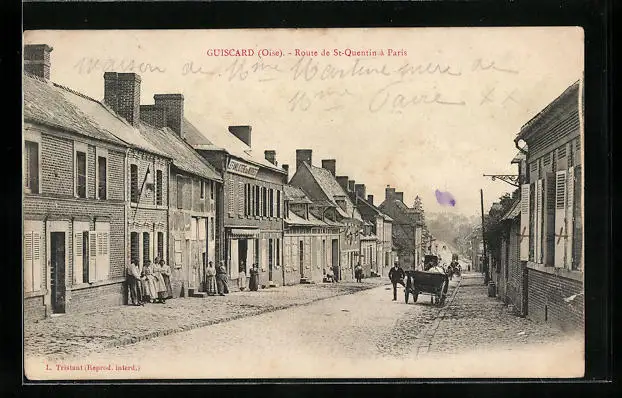 GUISCARD (Oise). - Route de St-Quentin à Paris
maison de Mme Martine mere de
Mme Pavie
L. Tristant (Reprod. interd.)